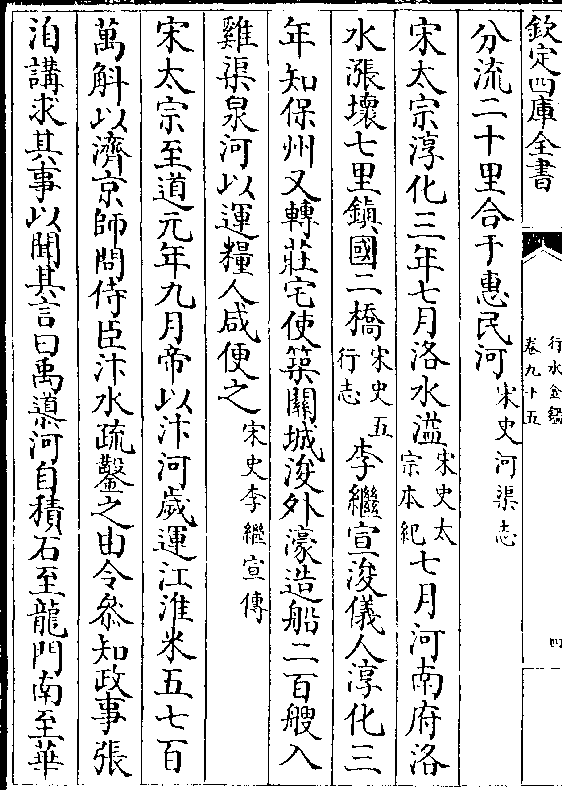 欽定四庫全書
行水金鑑
卷九十五
四
分流二十里合于惠民河宋史河渠志
宋太宗淳化三年七月洛水溢宋史太宗本紀七月河南府洛
水漲壞七里鎮國二橋宋史五行志李繼宣浚儀人淳化三
年知保州又轉莊宅使築關城浚外濠造船二百艘入
雞渠泉河以運糧人咸便之宋史李繼宣傳
宋太宗至道元年九月帝以汴河歲運江淮米五七百
萬斛以濟京師問侍臣汴水疏鑿之由令叅知政事張
洎講求其事以聞其言曰禹導河自積石至龍門南至華